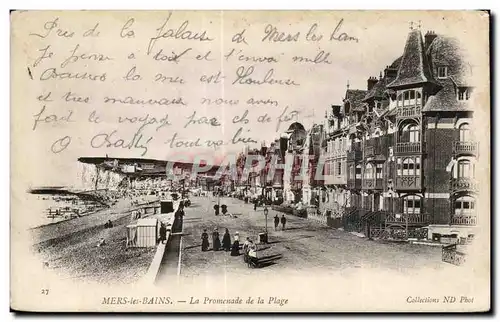 Près de la falaise de Mers les bain
Je pense à toi et t'envoi mille
Baisers la mer est Houleuse
et très mauvais nous avons
fait le voyage pas de
à tout va bien
CPARAMA.COM
27 MERS-les-BAINS. — La Promenade de la Plage Collections ND Phot